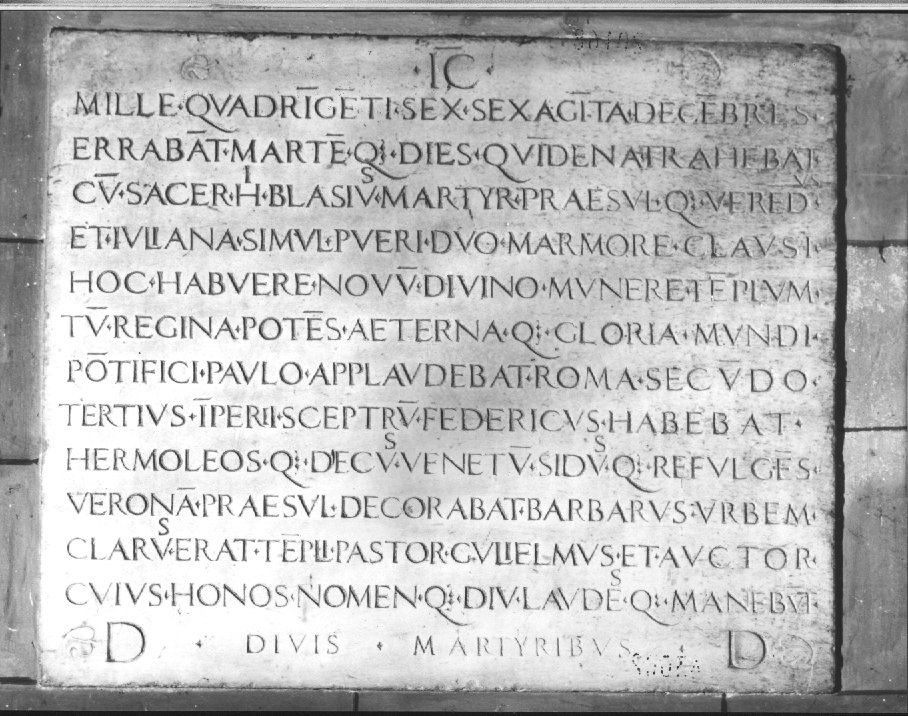 ·I̅C̅·
MILLE·QVADRI̅GE̅TI·SEX·SEXAGI̅TA·DECE̅BRES·
ERRABA̅T·MARTE̅·Q⁝·DIES·QVI̅DENA TRAHEBAT
CV̅·SACER·HI·BLASIVS·MARTYR·PRAESVL·Q⁝·VEREDVS·
ET·IVLIANA·SIMVL·PVERI·DVO·MARMORE·CLAVSI·
HOC·HABVERE·NOVV̅·DIVINO·MVNERE·TE̅PLVM·
TV̅·REGINA·POTE̅S·AETERNA·Q⁝·GLORIA·MVNDI·
PO̅TIFICI·PAVLO·APPLAVDEBAT·ROMA·SECV̅DO·
TERTIVS·I̅PERII·SCEPTRV̅·FEDERICVS·HABEBAT·
HERMOLEOS·Q⁝·DECVS·VENETV̅·SIDVS·Q⁝·REFVLGE̅S·
VERONA̅·PRAESVL·DECORABAT·BARBARVS·VRBEM·
CLARVS·ERAT·TE̅PLI·PASTOR·GVLIELMVS·ET·AVCTOR·
CVIVS·HONOS·NOMEN·Q⁝·DIV·LAVDES·Q⁝·MANEBV̅T·
D · DIVIS · MARTYRIBVS · D